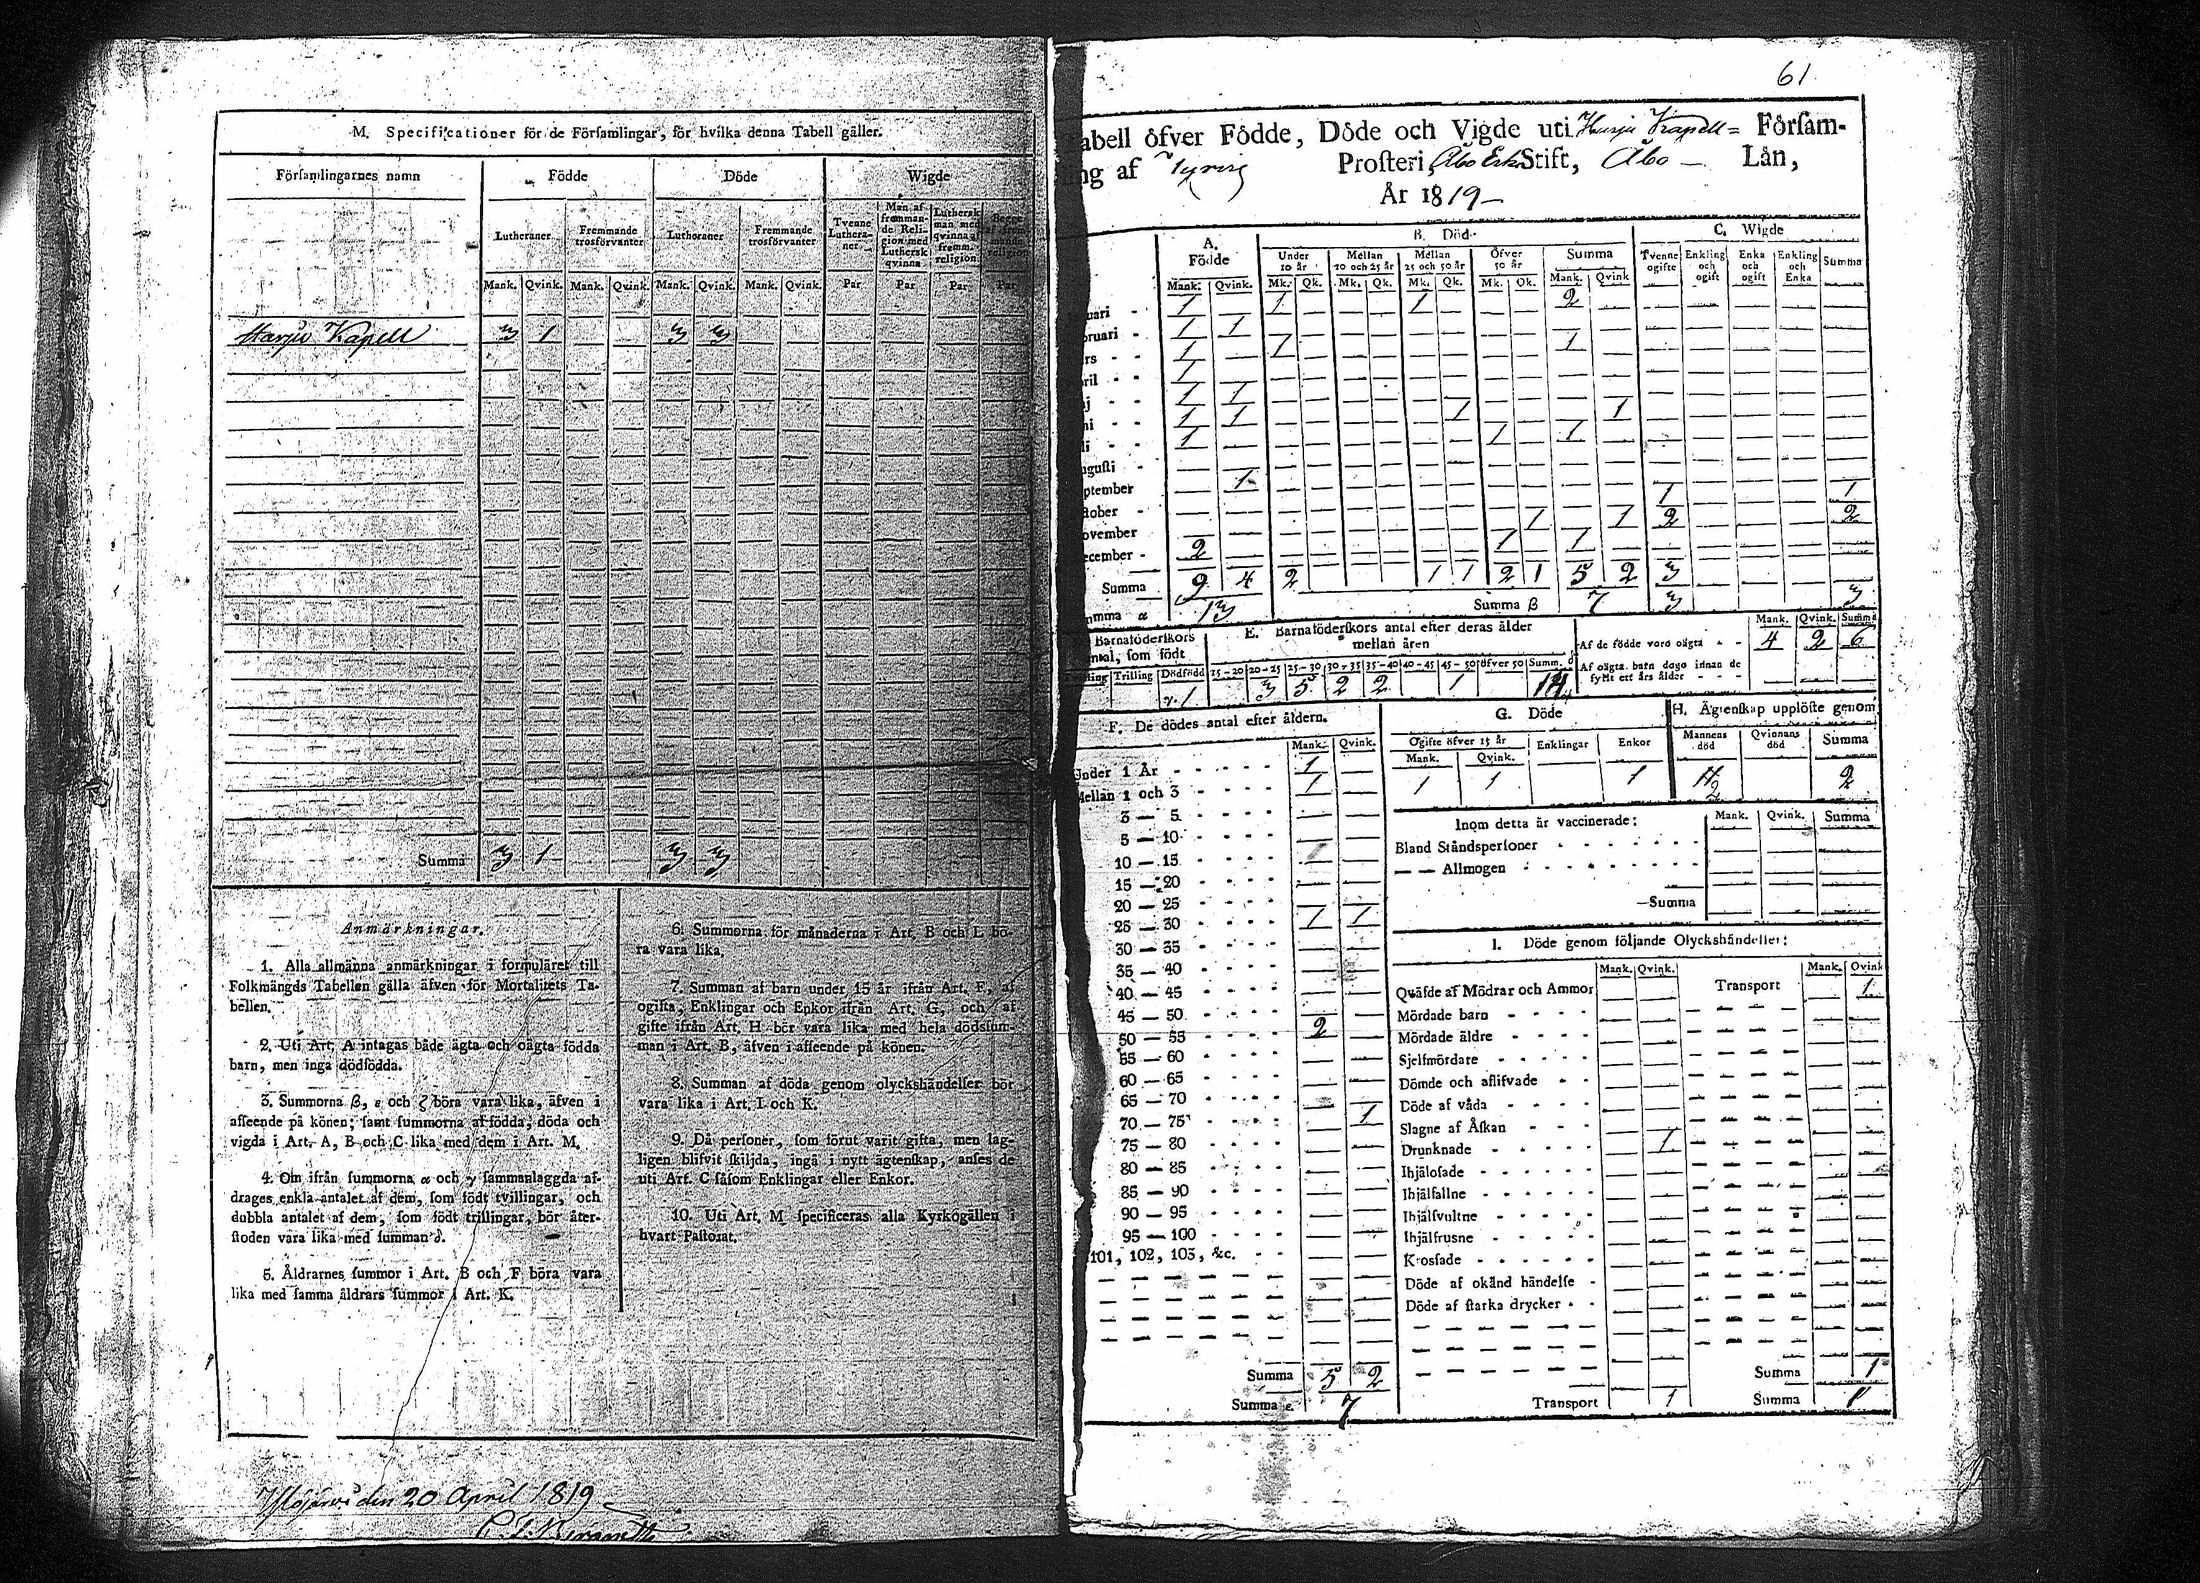 M. Specificationer för de Församlingar, för hvilka denna Tabell gäller.
Församlingarnes namn Födde Döde Wigde
Lutheraner Fremmande trosförvanter Lutheraner Fremmande trosförvanter Tvenne Lutheraner Man af fremmande Religion med Luthersk qvinna Luthersk man med qvinna af fremm. religion Begge af fremmande religion
Mank. Qvink. Mank. Qvink. Mank. Qvink. Mank. Qvink. Par Par Par Par
Harju Kapell 3 1 3 3
Summa 3 1 3 3
Anmärkningar.
1. Alla allmänna anmärkningar i formuläret till
Folkmängds Tabellen gälla äfven för Mortalitets Ta-
bellen.
2. Uti Art. A intagas både ägta och oägta födda
barn, men inga dödfödda.
3. Summorna β, ε och ζ böra vara lika, äfven i
afseende på könen; samt summorna af födda, döda och
vigda i Art. A, B och C lika med dem i Art. M.
4. Om ifrån summorna α och γ sammanlaggda af-
drages enkla antalet af dem, som födt tvillingar, och
dubbla antalet af dem, som födt trillingar, bör åter-
stoden vara lika med summan δ.
5. Åldrarnes summor i Art. B och F böra vara
lika med samma åldrars summor i Art. K.
6. Summorna för månaderna i Art. B och L bö-
ra vara lika.
7. Summan af barn under 15 år ifrån Art. F, af
ogifta, Enklingar och Enkor ifrån Art. G, och af
gifte ifrån Art. H bör vara lika med hela dödssum-
man i Art. B, äfven i afseende på könen.
8. Summan af döda genom olyckshändelser bör
vara lika i Art. I och K.
9. Då personer, som förut varit gifta, men lag-
ligen blifvit skiljda, ingå i nytt ägtenskap, anses de
uti Art. C såsom Enklingar eller Enkor.
10. Uti Art. M specificeras alla Kyrkogällen i
hvart Pastorat.
den 20 April 1819
61
abell öfver Födde, Döde och Vigde uti Harju Kapell = Försam-
ng af Prosteri, Åbo Erke Stift, Åbo Län,
År 1819
A. Födde B. Död C. Wigde
Under 10 år Mellan 10 och 25 år Mellan 25 och 50 år Öfver 50 år Summa Tvenne ogifte Enkling och ogift Enka och ogift Enkling och Enka Summa
Mank. Qvink. Mk. Qk. Mk. Qk. Mk. Qk. Mk. Qk. Mank. Qvink
uari 1 1 1 2
bruari 1 1
rs 1 1 1
pril 1
aj 1 1
ni 1 1 1 1
li 1 1 1
ugusti
ptember 1
tober 1 1
ovember 1 1 2 2
ecember 2 1 1
Summa 9 4 2 1 1 2 1 5 2 3
mma α 13 Summa β 7 3 3
Barnaföderskors
ntal, som födt
ling Trilling Dödfödd
γ. 1
E. Barnaföderskors antal efter deras ålder
mellan åren
15-20 20-25 25-30 30-35 35-40 40-45 45-50 öfver 50 Summ. δ
3 5 2 2 1 14
Mank. Qvink. Summa
Af de födde voro oägta 4 2 6
Af oägta barn dogo innan de
fyllt ett års ålder
F. De dödes antal efter åldern.
Mank. Qvink.
Under 1 År 1
Mellan 1 och 3 1
3 — 5
5 — 10
10 — 15
15 — 20
20 — 25
25 — 30 1 1
30 — 35
35 — 40
40 — 45
45 — 50
50 — 55 2
55 — 60
60 — 65
65 — 70
70 — 75 1
75 — 80
80 — 85
85 — 90
90 — 95
95 — 100
101, 102, 103, &c.
Summa 5 2
Summa ε. 7
G. Döde
Ogifte öfver 15 år Enklingar Enkor
Mank. Qvink.
1 1 1
H. Ägtenskap upplöste genom
Mannens död Qvinnans död Summa
2 2
Inom detta år vaccinerade: Mank. Qvink. Summa
Bland Ståndspersoner
— — Allmogen
Summa
I. Döde genom följande Olyckshändelser:
Mank. Qvink. Mank. Qvink
Qväfde af Mödrar och Ammor Transport 1
Mördade barn
Mördade äldre
Sjelfmördare
Dömde och aflifvade
Döde af våda
Slagne af Åskan
Drunknade 1
Ihjälosade
Ihjälfallne
Ihjälsvultne
Ihjälfrusne
Krossade
Döde af okänd händelse
Döde af starka drycker
Summa 1
Transport 1 Summa 1